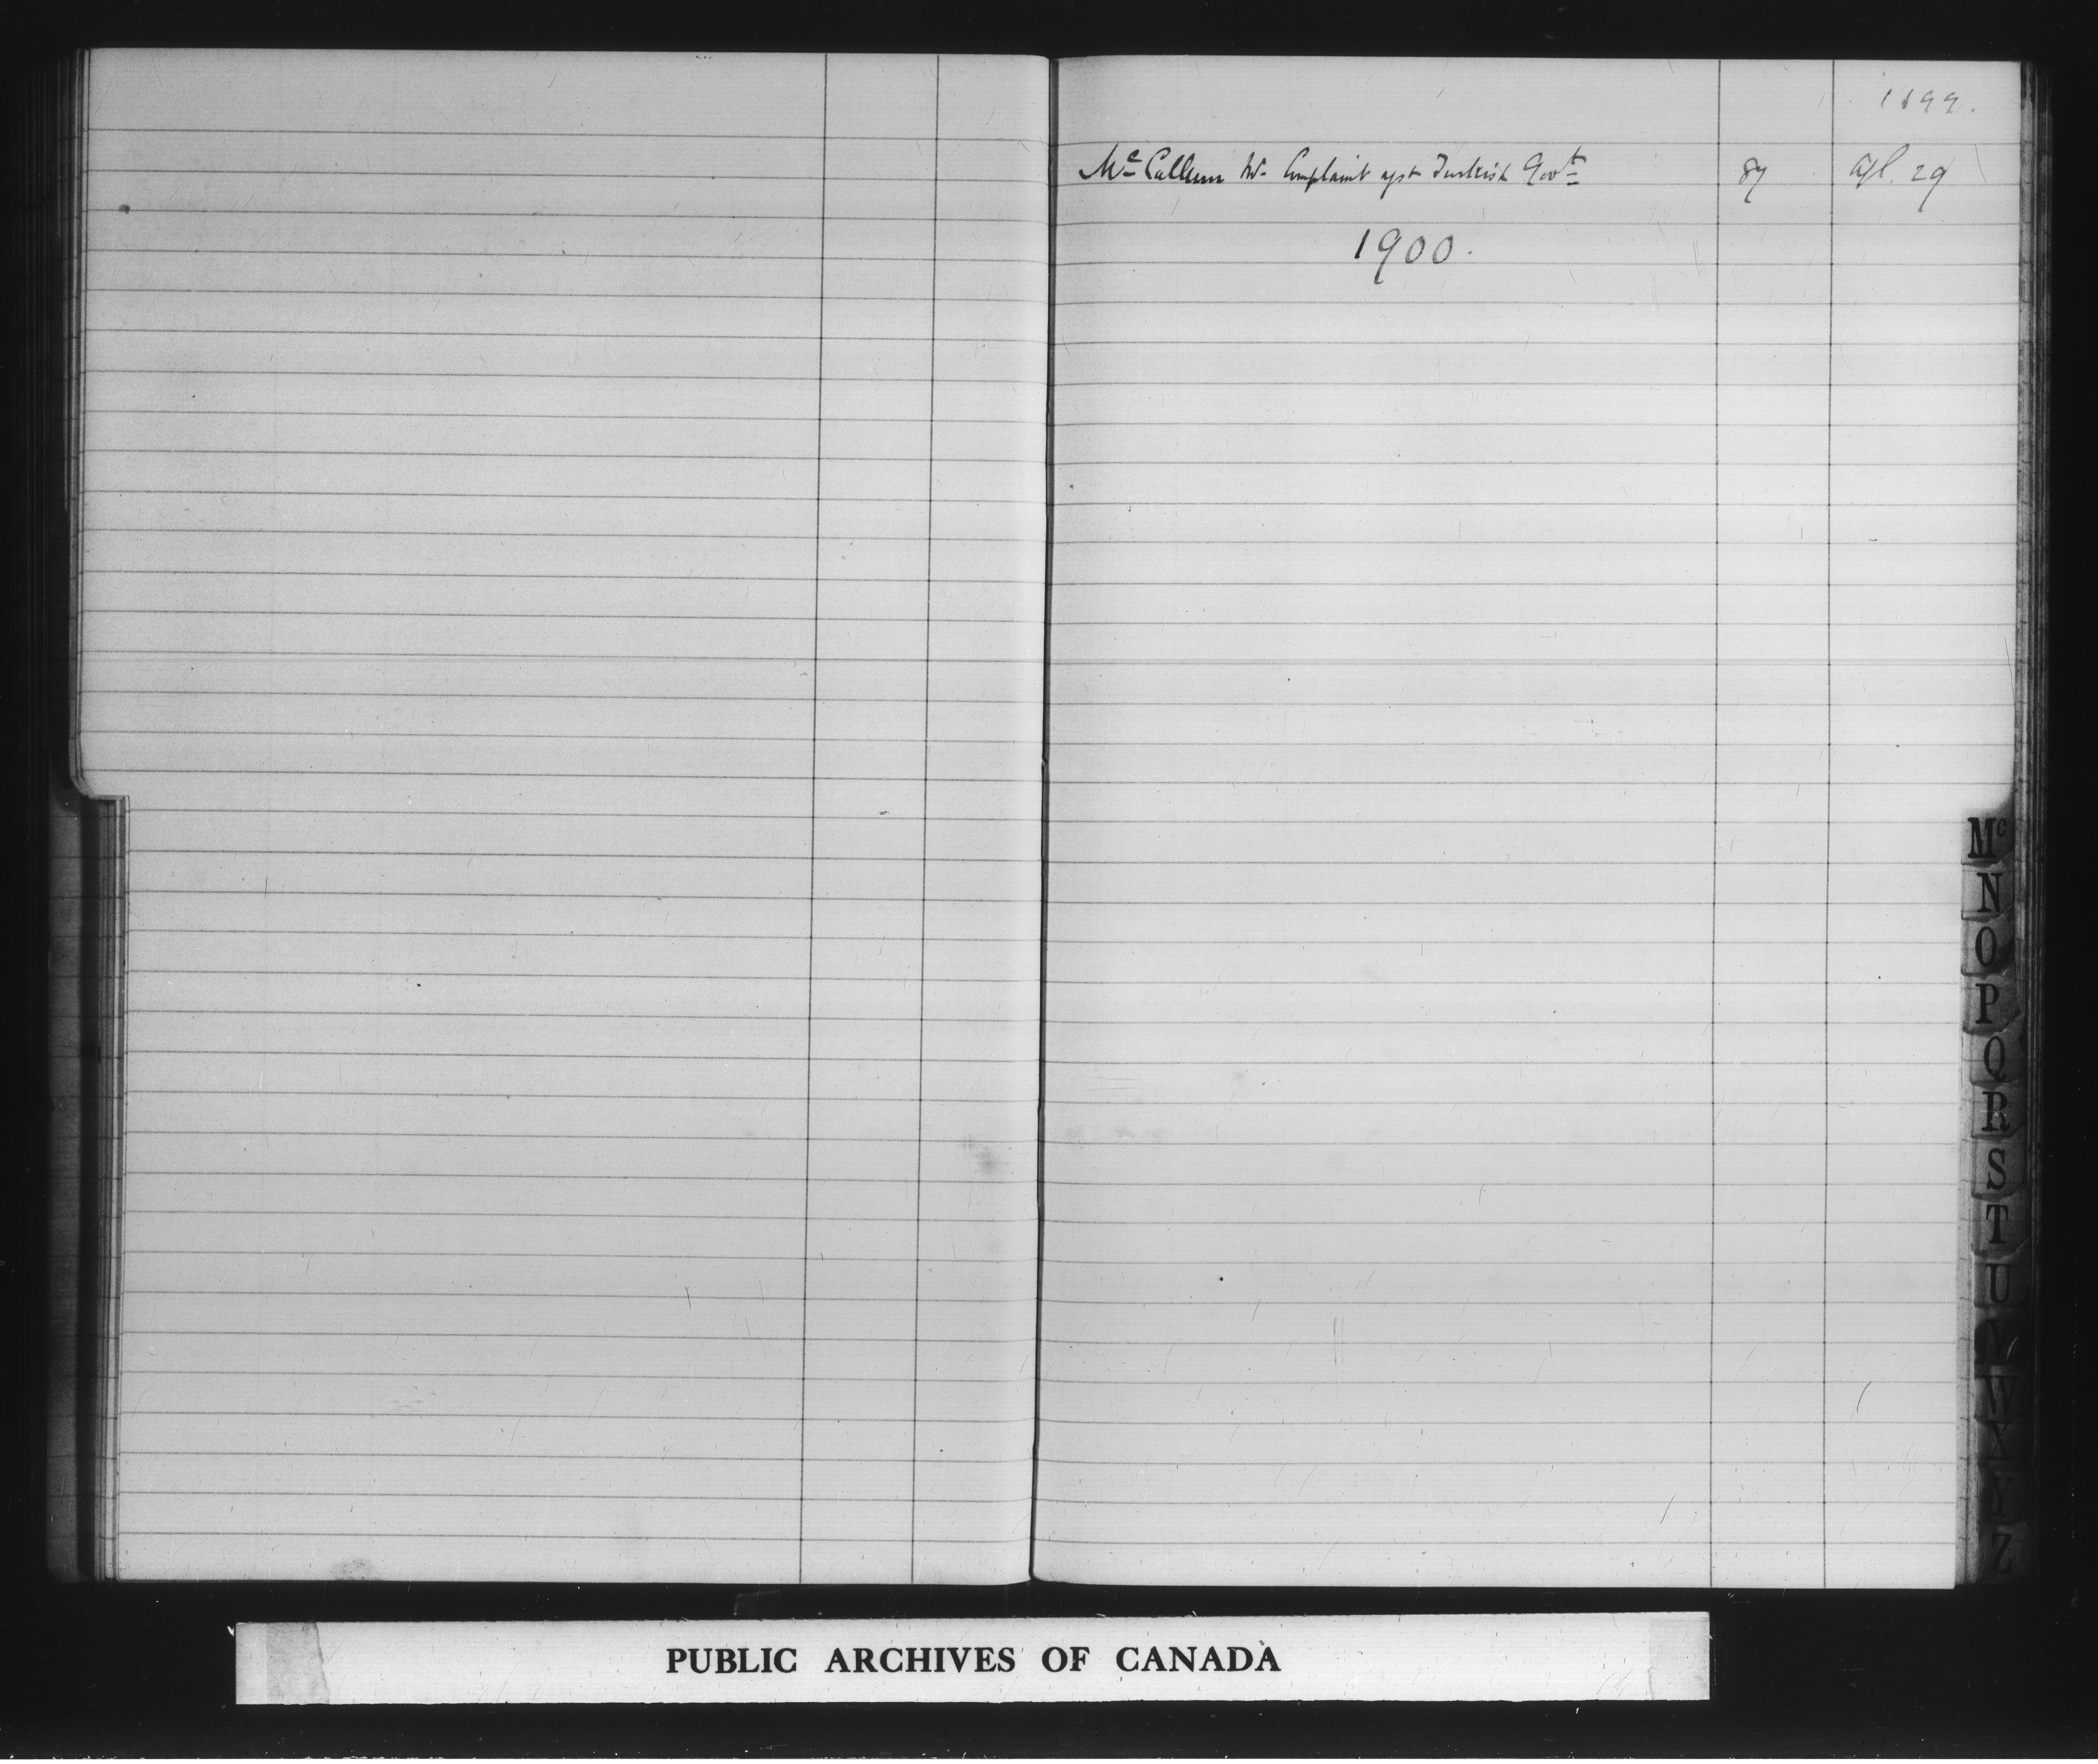 1899.
Mc Callum Complaint agst Turkish Govt 89 Apl. 29
1900.
Mc
N
O
P
Q
R
S
T
U
V
W
X
Y
Z
PUBLIC ARCHIVES OF CANADA